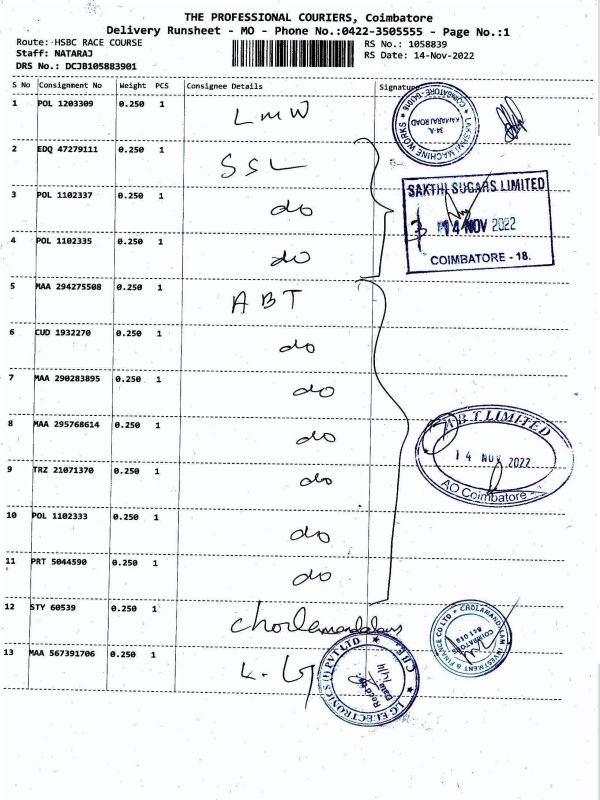 THE PROFESSIONAL COURIERS, Coimbatore
Delivery Runsheet - MO - Phone No.:0422-3505555 - Page No.:1
Route: HSBC RACE COURSE
RS No.: 1058839
Staff: NATARAJ
RS Date: 14-Nov-2022
DRS No.: DCJB105883901
S No Consignment No Weight PCS Consignee Details Signature
1 POL 1203309 0.250 1 LMW
LAKSHMI MACHINE WORKS * COIMBATORE - 641018
34-A, KAMARAJ ROAD
2 EDQ 47279111 0.250 1 SSL
SAKTHI SUGARS LIMITED
14 NOV 2022
COIMBATORE - 18.
3 POL 1102337 0.250 1 do
4 POL 1102335 0.250 1 do
5 MAA 294275508 0.250 1 ABT
6 CUD 1932270 0.250 1 do
7 MAA 290283895 0.250 1 do
8 MAA 295768614 0.250 1 do
A.B.T. LIMITED
14 NOV 2022
AO Coimbatore
9 TRZ 21071370 0.250 1 do
10 POL 1102333 0.250 1 do
11 PRT 5044590 0.250 1 do
12 STY 60539 0.250 1 Cholamandalam
CHOLAMANDALAM INVESTMENT & FINANCE CO LTD *
COIMBATORE 641 018
13 MAA 567391706 0.250 1 L.G
LG ELECTRONICS (I) PVT LTD * CBE *
Recd By
Date